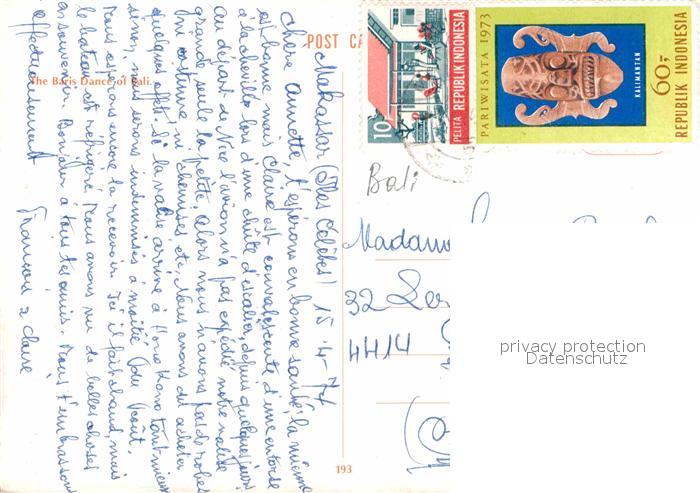 POST CA
The Baris Dance of Bali.
Makassar (Iles Célèbes) 15-4-74
Chère Annette, t'espérons en bonne santé, la mienne
est bonne mais Claire est convalescente d'une entorse
à la cheville lors d'une chûte d'escalier, depuis quelques jours
Au départ de Nice l'avion n'a pas expédié notre valise
grande seule la petite, alors nous n'avons pas de robes
ni costume ni chemises etc, Nous avons dû acheter
quelques effets. Si la valise arrive à Hong Kong tant mieux
sinon nous serons indemnisés à moitié du coût.
Nous espérons encore la recevoir. Ici il fait chaud, mais
le bateau est réfrigéré. Nous avons vu de belles choses
au souvenir. Bonjour à tous tes amis. Nous t'embrassons
affectueusement
François & Claire
193
10
PELITA REPUBLIK INDONESIA
PARIWISATA 1973
KALIMANTAN
60,-
REPUBLIK INDONESIA
Bali
Madam
32
4414
privacy protection
Datenschutz